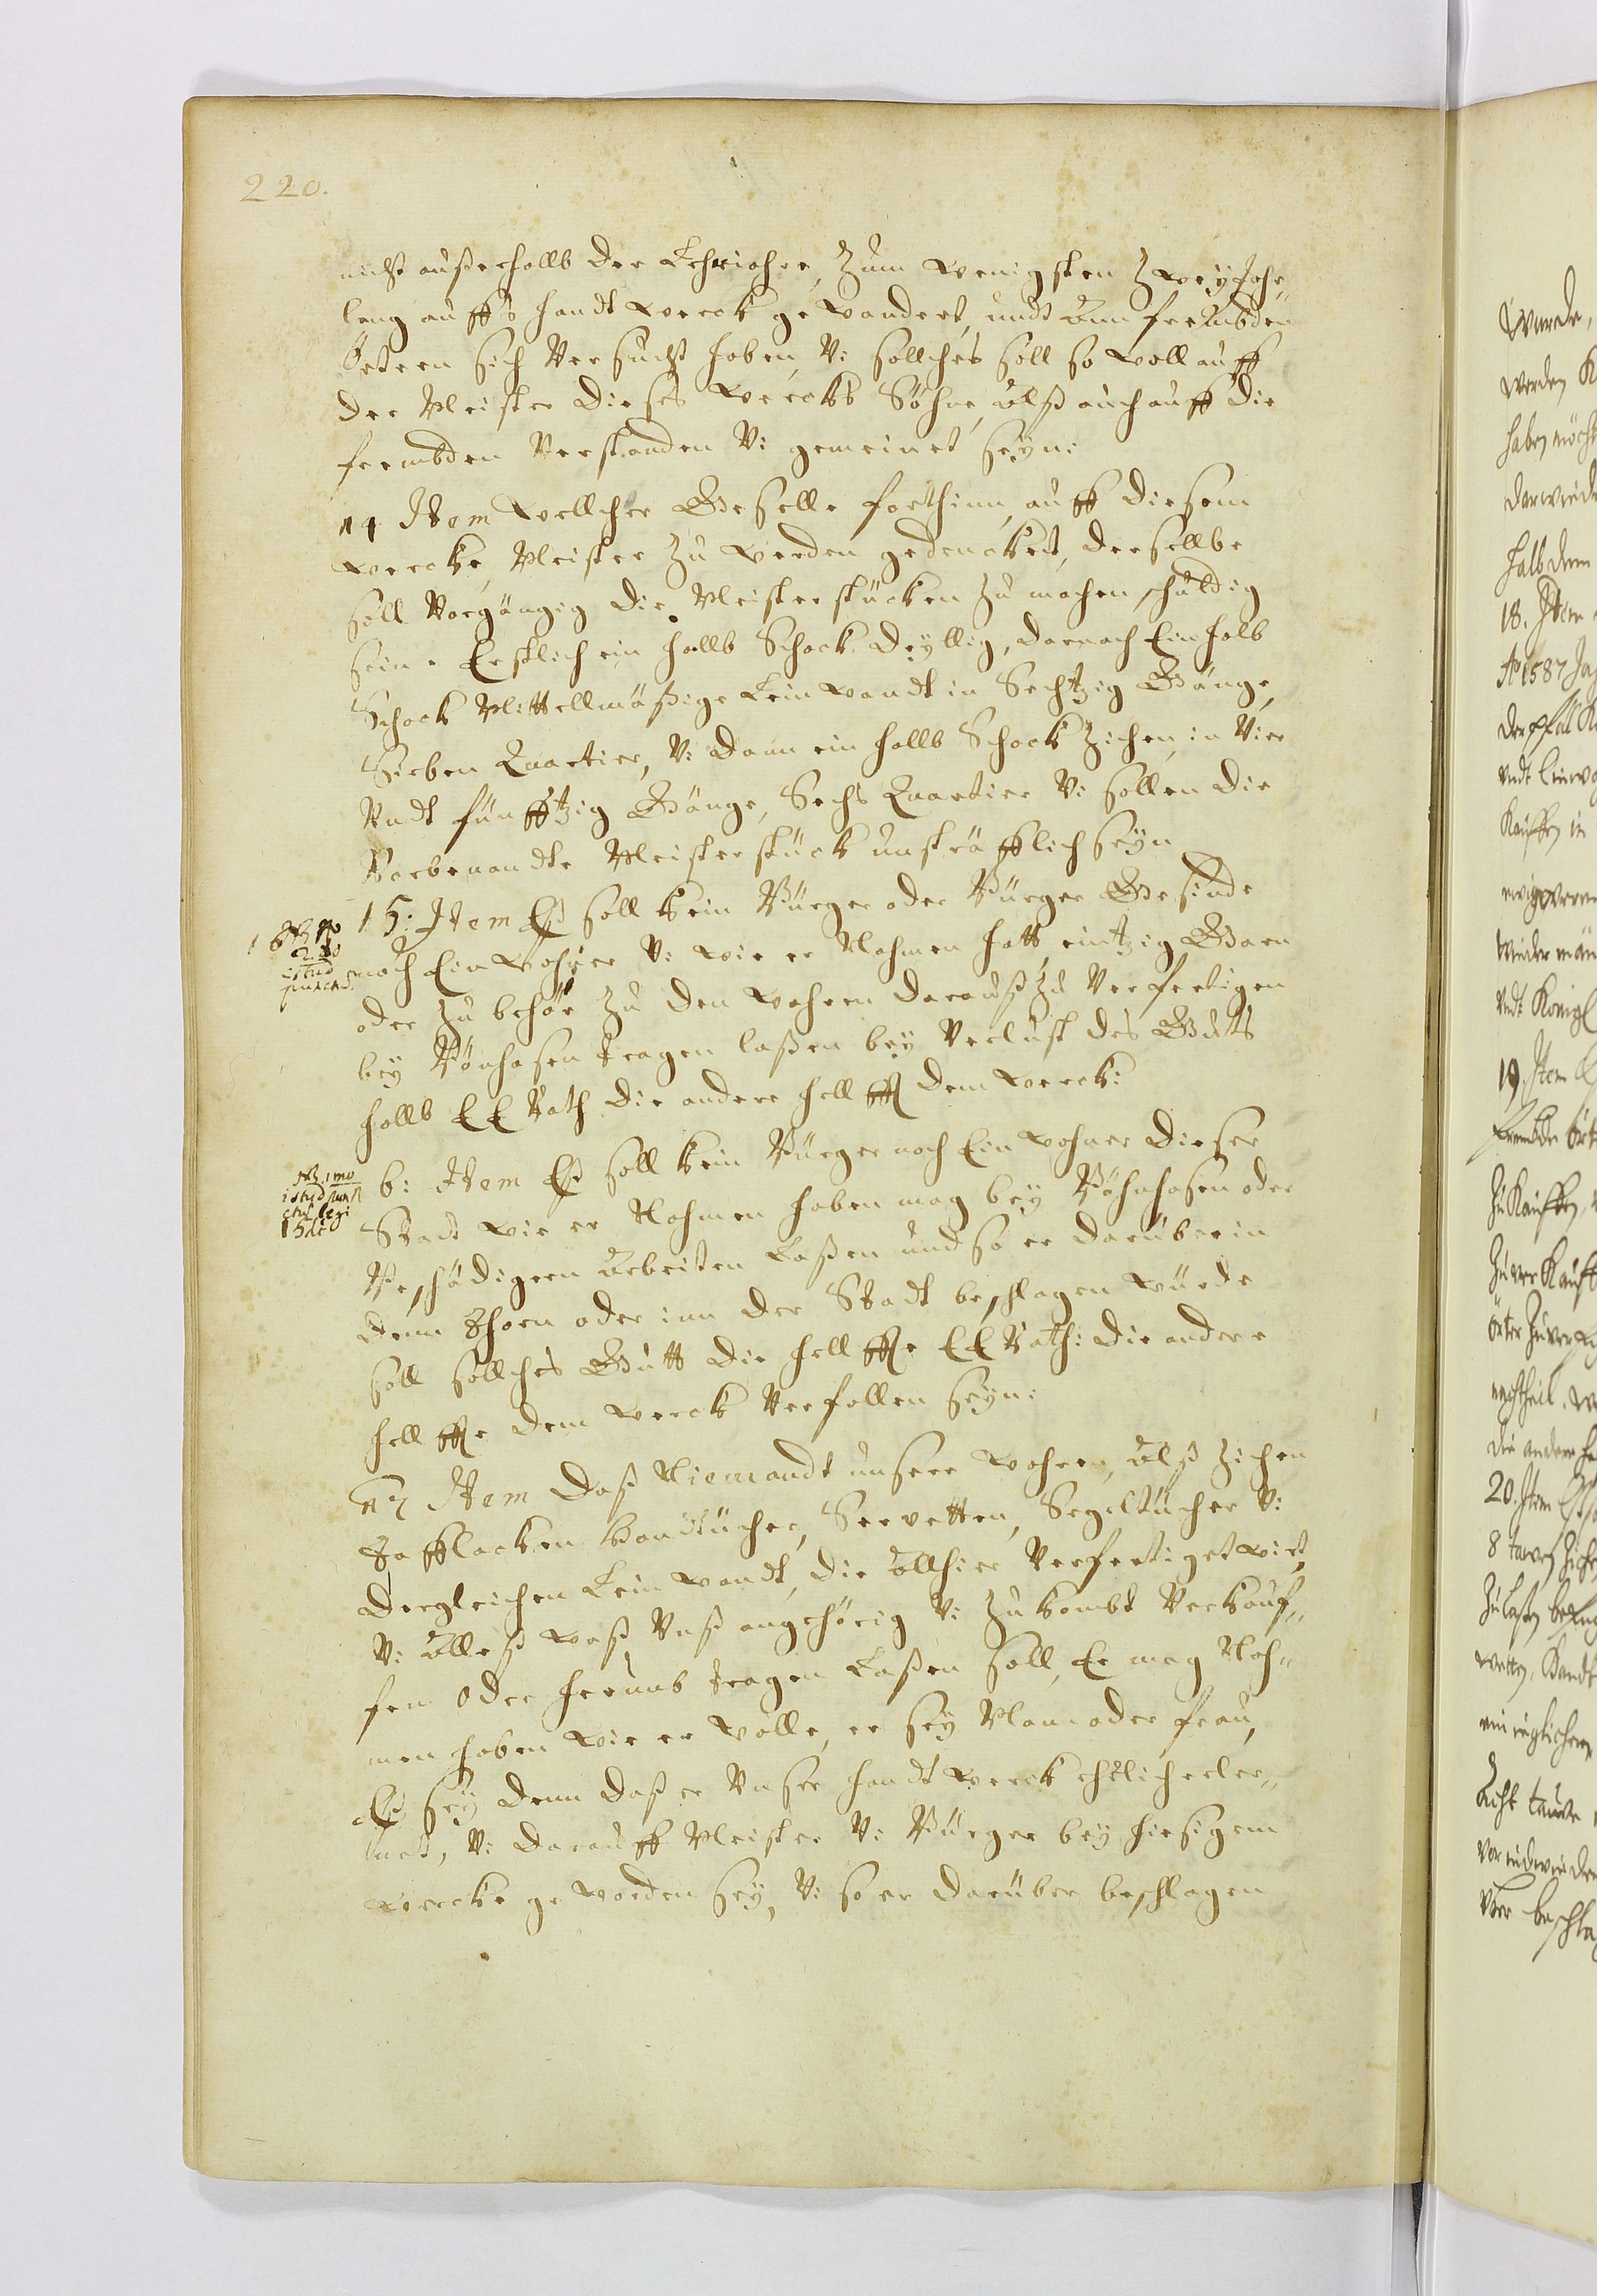 220.
nicht außerhallb der Lehriahre, Zum wenigsten Zwey Jahr
lang auffs handtwerck gewandert, undt ann frembden
Örteren sich Versucht haben, V: sollches soll so woll auff
der Meister dieses wercks Söhne, alß auch auff die
frembden Verstanden V: gemeinet seyn:
14 Item wellcher Geselle forthinn, auff diesem
wercke, Meister Zu werden gedencket, derselbe
soll Vorgängig die Meisterstücken Zu machen schuldig
sein. Erstlich ein hallb Schock dryllig, darnach Ein halb
Schock Mittellmäßige Leinwandt in Sechtzig Gänge
Sieben Quartier, V: dann ein hallb Schock Zichen, in Vier
Vndt fünfftzig Gänge, Sechs Quartier V: sollen die
Vorbenandte Meisterstück unsträfflich seyn
15: Item Eß soll kein Bürger oder Bürger Gesinde
noch Einwohner V: wie er Nahmen hatt, eintzig Garn
oder Zubehör Zu den wahren darauß Zu Verfertigen
bey Bönhasen tragen laßen bey Verlust des Gutts
hallb EE Rath die andere hellfft dem werck:
istud
6: Item Eß soll kein Bürger noch Einwohner dieser
Stadt wie er Nahmen haben mag bey Böhnhasen oder
Beschädigern arbeiten Laßen und so er darüber in
dem Thorn oder inn der Stadt beschlagen würde
soll sollches Gutt die hellffte EE Rath: die andere
hellffte dem werck Verfallen seyn:
istud punct
legi
17 Item daß Niemandt unsere wahren, alß Zichen
Tafflacken Handtücher, Servetten, Segeltücher V:
dergleichen Leinwandt, die allhier Verfertiget wirt,
V: alleß waß Vnß angehörig V: Zukombt Verkauf„
fen oder herumb tragen Laßen soll, Er mag Nah„
men haben wie er wolle, er sey Man oder frau,
Eß sey denn daß er Vnser handtwerck ehrlich erler„
net, V: darauff Meister V: Bürger bey hiesigem
wercke geworden sey, V: so er darüber beschlagen
wurde,
werden
haben möcht
darwied
halb dem
18. Item
Ao 1587
der
undt Leinwa
Kauffen in
wieder
undt Königl
19. Item
frembde ört
Zu Kauffen,
Zu verkauff
örter
die andere
20. Item
8
Zu laßen
Acht
beschla